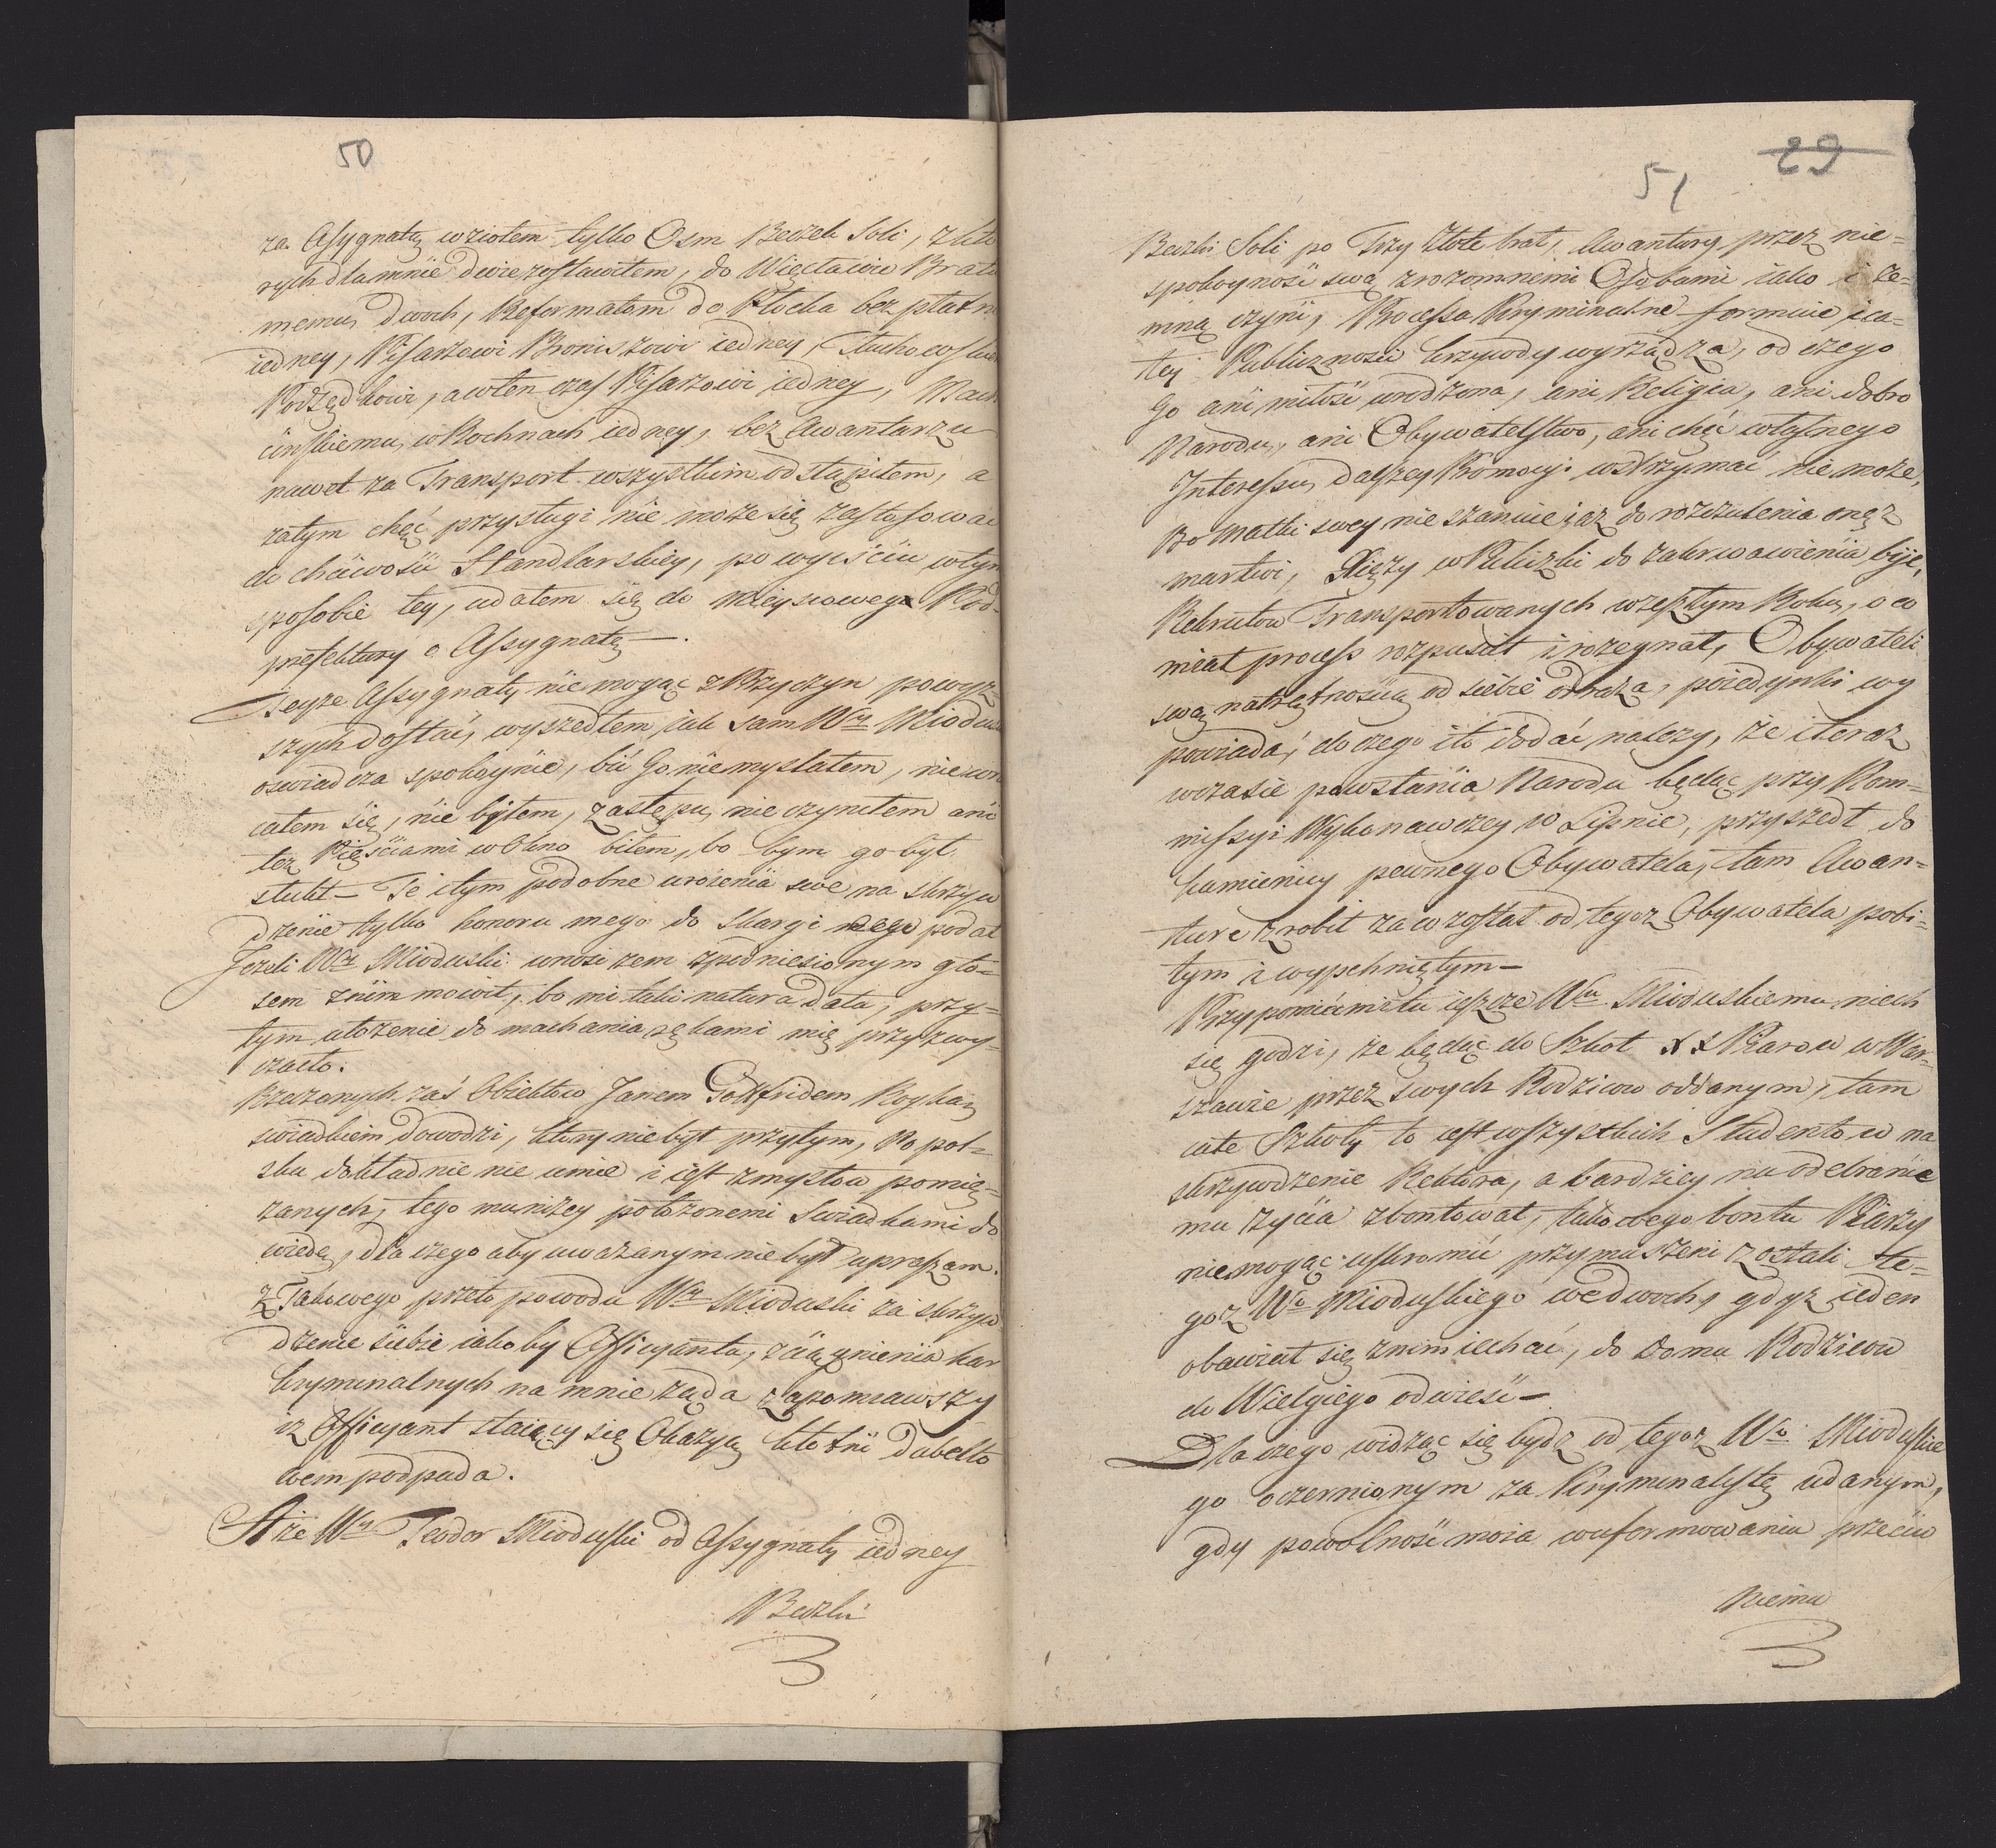 50
za Assygnatą wziołem tylko Osm Beczek Soli, z któ
rych dla mnie dwie zostawiłem, do Więcławic Bratu
memu dwoch, Reformatom do Płocka bez płatn
iedney, Pisarzowi Broniszowi iedney,
Podsędkowi, a wten czas Pisarzowi iedney,
w Rochnach iedney, bez Awantarzu
nawet za Transport wszystkim odstąpiłem, a
zatym chęć przysługi nie może się zastosować
do chciwości Handlarskiey, po wyiściu wtym
sposobie tey, udałem się do mieyscowego Pod-
prefektury o Assygnatę.
Teyze Assygnaty nie mogąc z Przyczyn powyż-
szych dostać, wyszedłem jak sam Wny Miodus
oswiadcza spokoynie, bić Go nie myslałem, nie
całem się, nie byłem, zastępu nie czyniłem ani
też Pięsciami w Okno biłem, bo bym go był
stukł – Te i tym podobne uroienia swe na skrzyw
dzenie tylko honoru mego do Skargi podał
Jeżeli Wny Mioduski unosi żem z podniesionym gło-
sem z nim mowił, bo mi taki natura dała, przy-
tym ułożenie do machania rękami mię przyzwy-
czaiło.
Rzeczonych zaś Obiektow Janem Gottfridem
swiadkiem dowodzi, który nie był przytym, Po pol-
sku dokładnie nie umie i iest zmysłow pomię-
zanych, tego mu niżey położonemi Swiadkami do
wiodę, dla czego aby uważanym nie był upraszam.
Z Takowego przeto powodu Wny Mioduski za skrzyw
dzenie siebie iakoby Officyanta, sciągnienia kar
kryminalnych na mnie żąda zapomniawszy
iż Officyant staiący się Okazyą kłotni
wem podpada.
A że Wny Teodor Mioduski od Assygnaty iedney
Beczki
29
51
Beczki Soli po Trzy Złote brał, Awantury przez nie-
spokoyność swą z rozomnemi Osobami iako i ze-
mną czyni, Processa Kryminalne formuie i ca-
łej Publiczności krzywdy wyrządza, od czego
Go ani miłość urodzona, ani Religia, ani dobro
Narodu, ani Obywatelstwo, ani chęć własnego
Interessu, dalszey Promocyi wstrzymać nie może,
Bo Matki swey nie szanuie i aż do rozczulenia onęż
martwi, Xięży w Publiczki do zakrwawienia bije,
Rekrutow Transportowanych w zeszłym Roku, o co
miał process rozpuscił i rozegnał, Obywateli
swą natrętnością od siebie odraża, poiedynki wy
powiada, do czego i to dodać należy, że i teraz
w czasie powstania Narodu będąc przy Kom-
missyi Wykonawczey w Lipnie, przyszedł do
kamienicy pewnego Obywatela, tam Awan-
turę zrobił za w został od tegoż Obywatela pobi-
tym i wypchniętym –
Przypomiń mi tu ieszcze Wu Mioduskiemu niech
się godzi, że będąc do Szkoł XX Piarow w War-
szawie przez swych Rodzicow oddanym, tam
całe Szkoły to iest wszystkich Studentow na
skrzywdzenie Rektora, a bardziey na odebranie
mu życia zbontował, takowego bontu Piarzy
nie mogąc uskromić przymuszeni zostali te-
goż Wo Mioduskiego we dwoch, gdyż ieden
obawiał się z nim iechać, do Domu Rodzicow
do Wielgiego odwieść –
Dla czego widząc się bydź od tegoż Wo Mioduskie
go oczernionym za Kryminalistę udanym,
gdy powolność moia w uformowaniu przeciw
Niemu